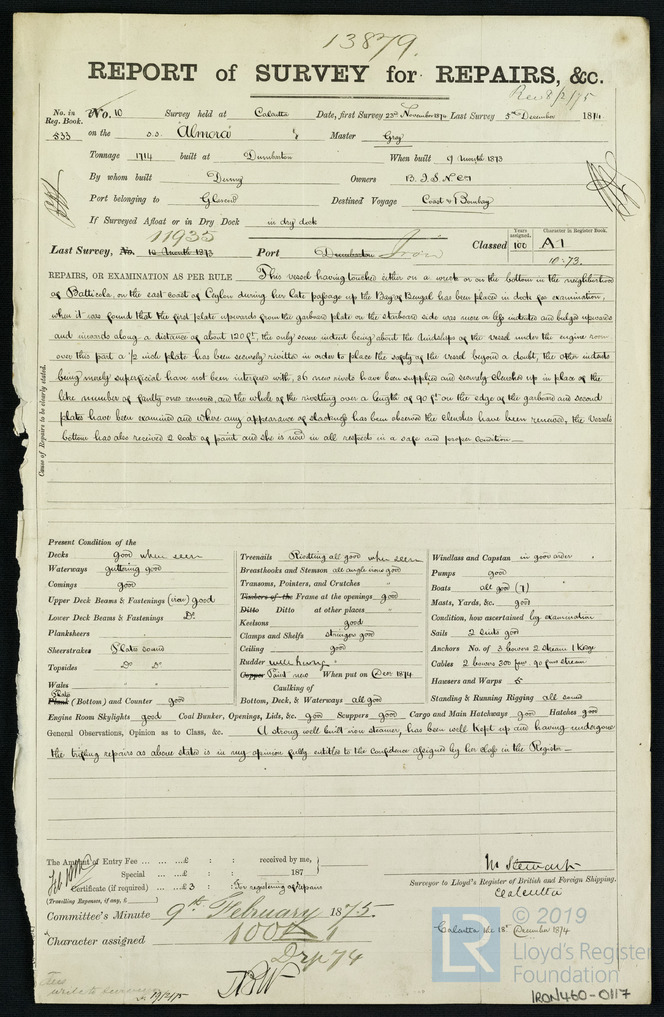 13879.
REPORT of SURVEY for REPAIRS, &c.
Rec 8/2/75
No. in Reg. Book. 833
No. 10 Survey held at Calcutta Date, first Survey 23rd November 1874 Last Survey 5th December 1874
on the s.s. Almora Master Gray
Tonnage 1714 built at Dumbarton When built 9 month 1873
By whom built Denny Owners B.I.S.N.Co
Port belonging to Glasgow Destined Voyage Coast & Bombay
If Surveyed Afloat or in Dry Dock in dry dock
11935
Last Survey, No. 10 month 1873 Port Dumbarton Iron Classed
Years assigned. 100
Character in Register Book. A1
10.73
REPAIRS, OR EXAMINATION AS PER RULE This vessel having touched either on a wreck or on the bottom in the neighbourhood
of Batticola, on the east coast of Ceylon during her late passage up the Bay of Bengal has been placed in dock for examination,
when it was found that the first plate upwards from the garboard plate on the starboard side was more or less indented and bulged upwards
and inwards along a distance of about 120 ft, the only severe indent being about the midships of the vessel under the engine room
over this part a 1/2 inch plate has been securely rivitted in order to place the safety of the vessel beyond a doubt, the other indents
being merely superficial have not been interfered with, 36 new rivets have been supplied and securely clenched up in place of the
like number of faulty ones removed, and the whole of the rivetting over a length of 90 ft on the edge of the garboard and second
plates have been examined and where any appearance of slackness has been observed the clenches have been renewed, the vessels
bottom has also received 2 coats of paint and she is now in all respects in a safe and proper condition
Cause of Repairs to be clearly stated.
Present Condition of the
Decks good when seen
Waterways guttering good
Comings good
Upper Deck Beams & Fastenings (iron) good
Lower Deck Beams & Fastenings Do.
Planksheers
Sheerstrakes Plates sound
Topsides Do Do
Wales
Plate
Plank (Bottom) and Counter good
Treenails Rivetting all good when seen
Breasthooks and Stemson all angle irons good
Transoms, Pointers, and Crutches "
Timbers of the Frame at the openings good
Ditto Ditto at other places "
Keelsons good
Clamps and Shelfs stringers good
Ceiling good
Rudder
Copper Paint new When put on Dec 1874
Caulking of
Bottom, Deck, & Waterways all good
Windlass and Capstan in good order
Pumps good
Boats all good (7)
Masts, Yards, &c. good
Condition, how ascertained by examination
Sails 2 suits good
Anchors No. of 3 bowers 2 stream 1 Kedge
Cables 2 bowers 300 fms 90 fms stream
Hawsers and Warps 5
Standing & Running Rigging all sound
Engine Room Skylights good Coal Bunker, Openings, Lids, &c. good Scuppers good Cargo and Main Hatchways good Hatches good
General Observations, Opinion as to Class, &c. A strong well built iron steamer, has been well kept up and having undergone
the trifling repairs as above stated is in my opinion fully entitled to the confidence assigned by her class in the Register
The Amount of Entry Fee ... ... ...£ : : received by me,
Special ... ...£ : : 187
Certificate (if required) ... £3 : : For registering repairs
(Travelling Expenses, if any, £ )
M Stewart
Surveyor to Lloyd's Register of British and Foreign Shipping.
Calcutta
Committee's Minute 9th February 1875.
Character assigned 100A 1
Drp 74
Calcutta the 18th December 1874
© 2019
LR
Lloyd's Register
Foundation
IRON460-0117